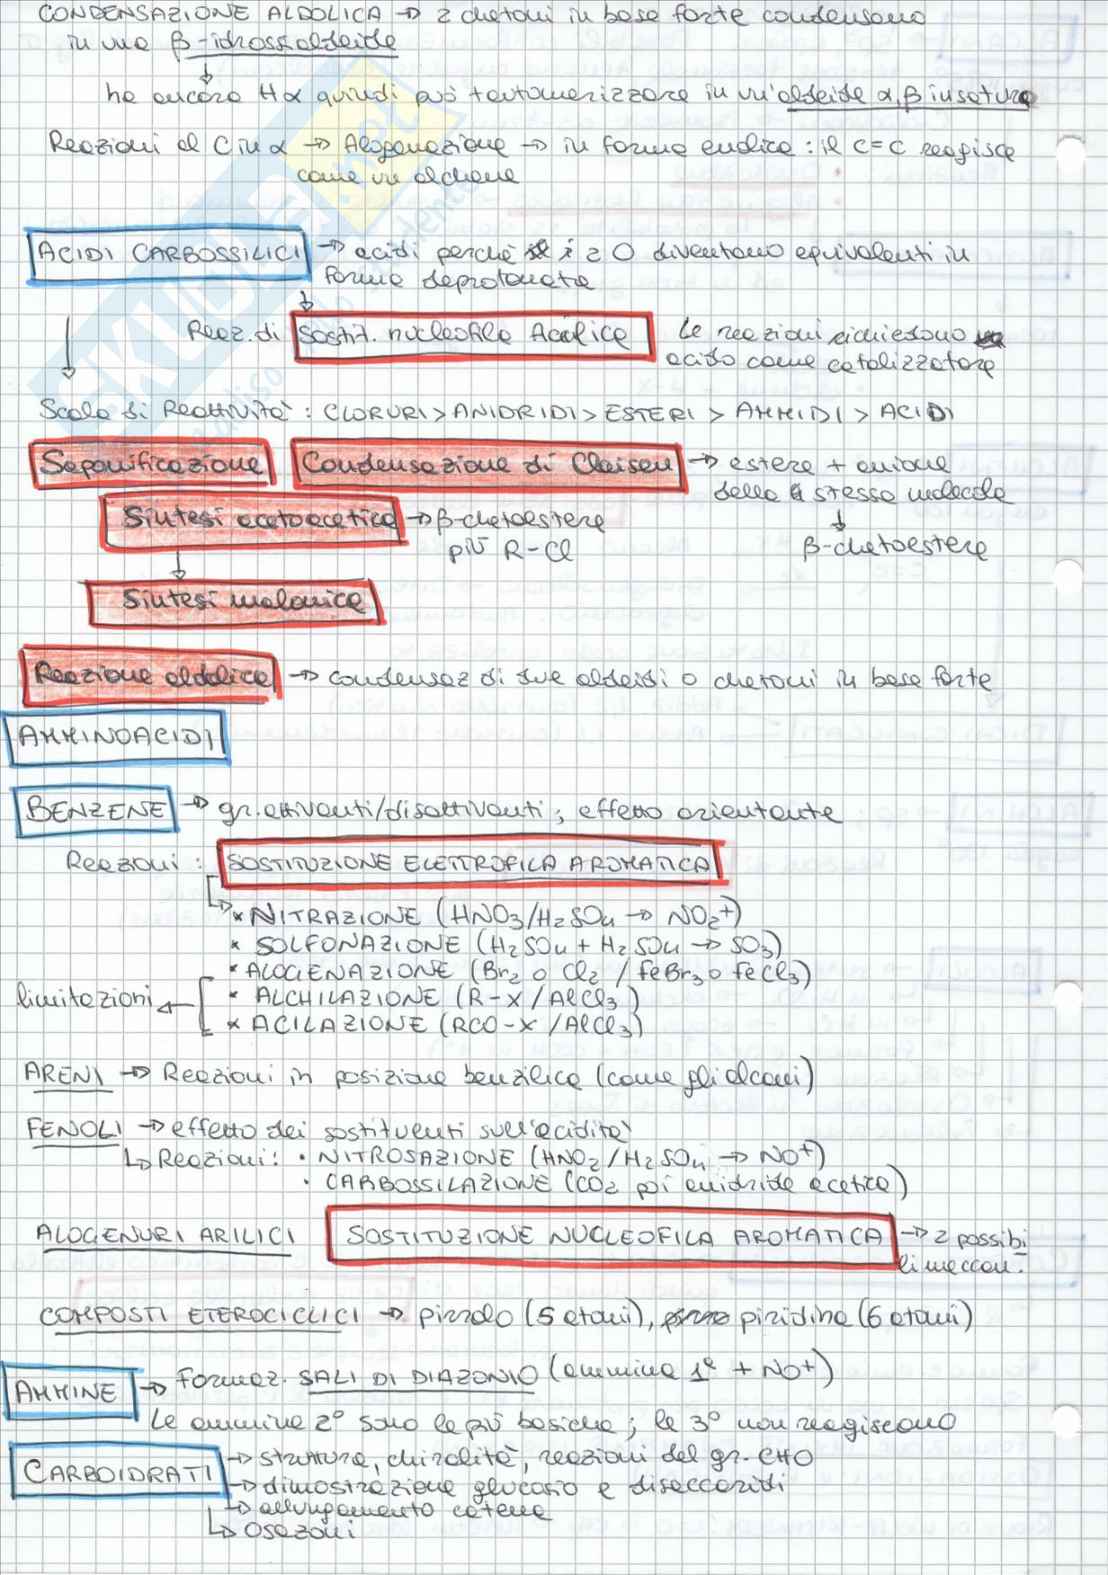 CONDENSAZIONE ALDOLICA → 2 chetoni in base forte condensano
in una β-idrossialdeide
ha ancora Hα quindi può tautomerizzare in un'aldeide α,β insatura
Reazioni al C in α → Alogenazione → in forma enolica: il C=C reagisce
come un alchene
ACIDI CARBOSSILICI → acidi perchè i 2 O diventano equivalenti in
forma deprotonata
Reaz. di Sostit. nucleofila Acilica Le reazioni richiedono
acido come catalizzatore
Scala di Reattività: CLORURI > ANIDRIDI > ESTERI > AMMIDI > ACIDI
Saponificazione Condensazione di Claisen → estere + anione
della stessa molecola
Sintesi acetoacetica → β-chetoestere
più R-Cl β-chetoestere
Sintesi malonica
Reazione aldolica → condensaz di due aldeidi o chetoni in base forte
AMMINOACIDI
BENZENE → gr. attivanti/disattivanti; effetto orientante
Reazioni: SOSTITUZIONE ELETTROFILA AROMATICA
* NITRAZIONE (HNO3/H2SO4 → NO2+)
* SOLFONAZIONE (H2SO4 + H2SO4 → SO3)
* ALOGENAZIONE (Br2 o Cl2 / FeBr3 o FeCl3)
limitazioni ← * ALCHILAZIONE (R-X/AlCl3)
* ACILAZIONE (RCO-X/AlCl3)
ARENI → Reazioni in posizione benzilica (come gli alcani)
FENOLI → effetto dei sostituenti sull'acidità
↳ Reazioni: • NITROSAZIONE (HNO2/H2SO4 → NO+)
• CARBOSSILAZIONE (CO2 poi anidride acetica)
ALOGENURI ARILICI SOSTITUZIONE NUCLEOFILA AROMATICA → 2 possibi
li meccan.
COMPOSTI ETEROCICLICI → pirrolo (5 atomi), piridina (6 atomi)
AMMINE → Formaz. SALI DI DIAZONIO (ammina 1° + NO+)
Le ammine 2° sono le più basiche; le 3° non reagiscono
CARBOIDRATI → struttura, chiralità, reazioni del gr. CHO
→ dimostrazione glucosio e disaccaridi
→ allungamento catena
↳ Osazoni